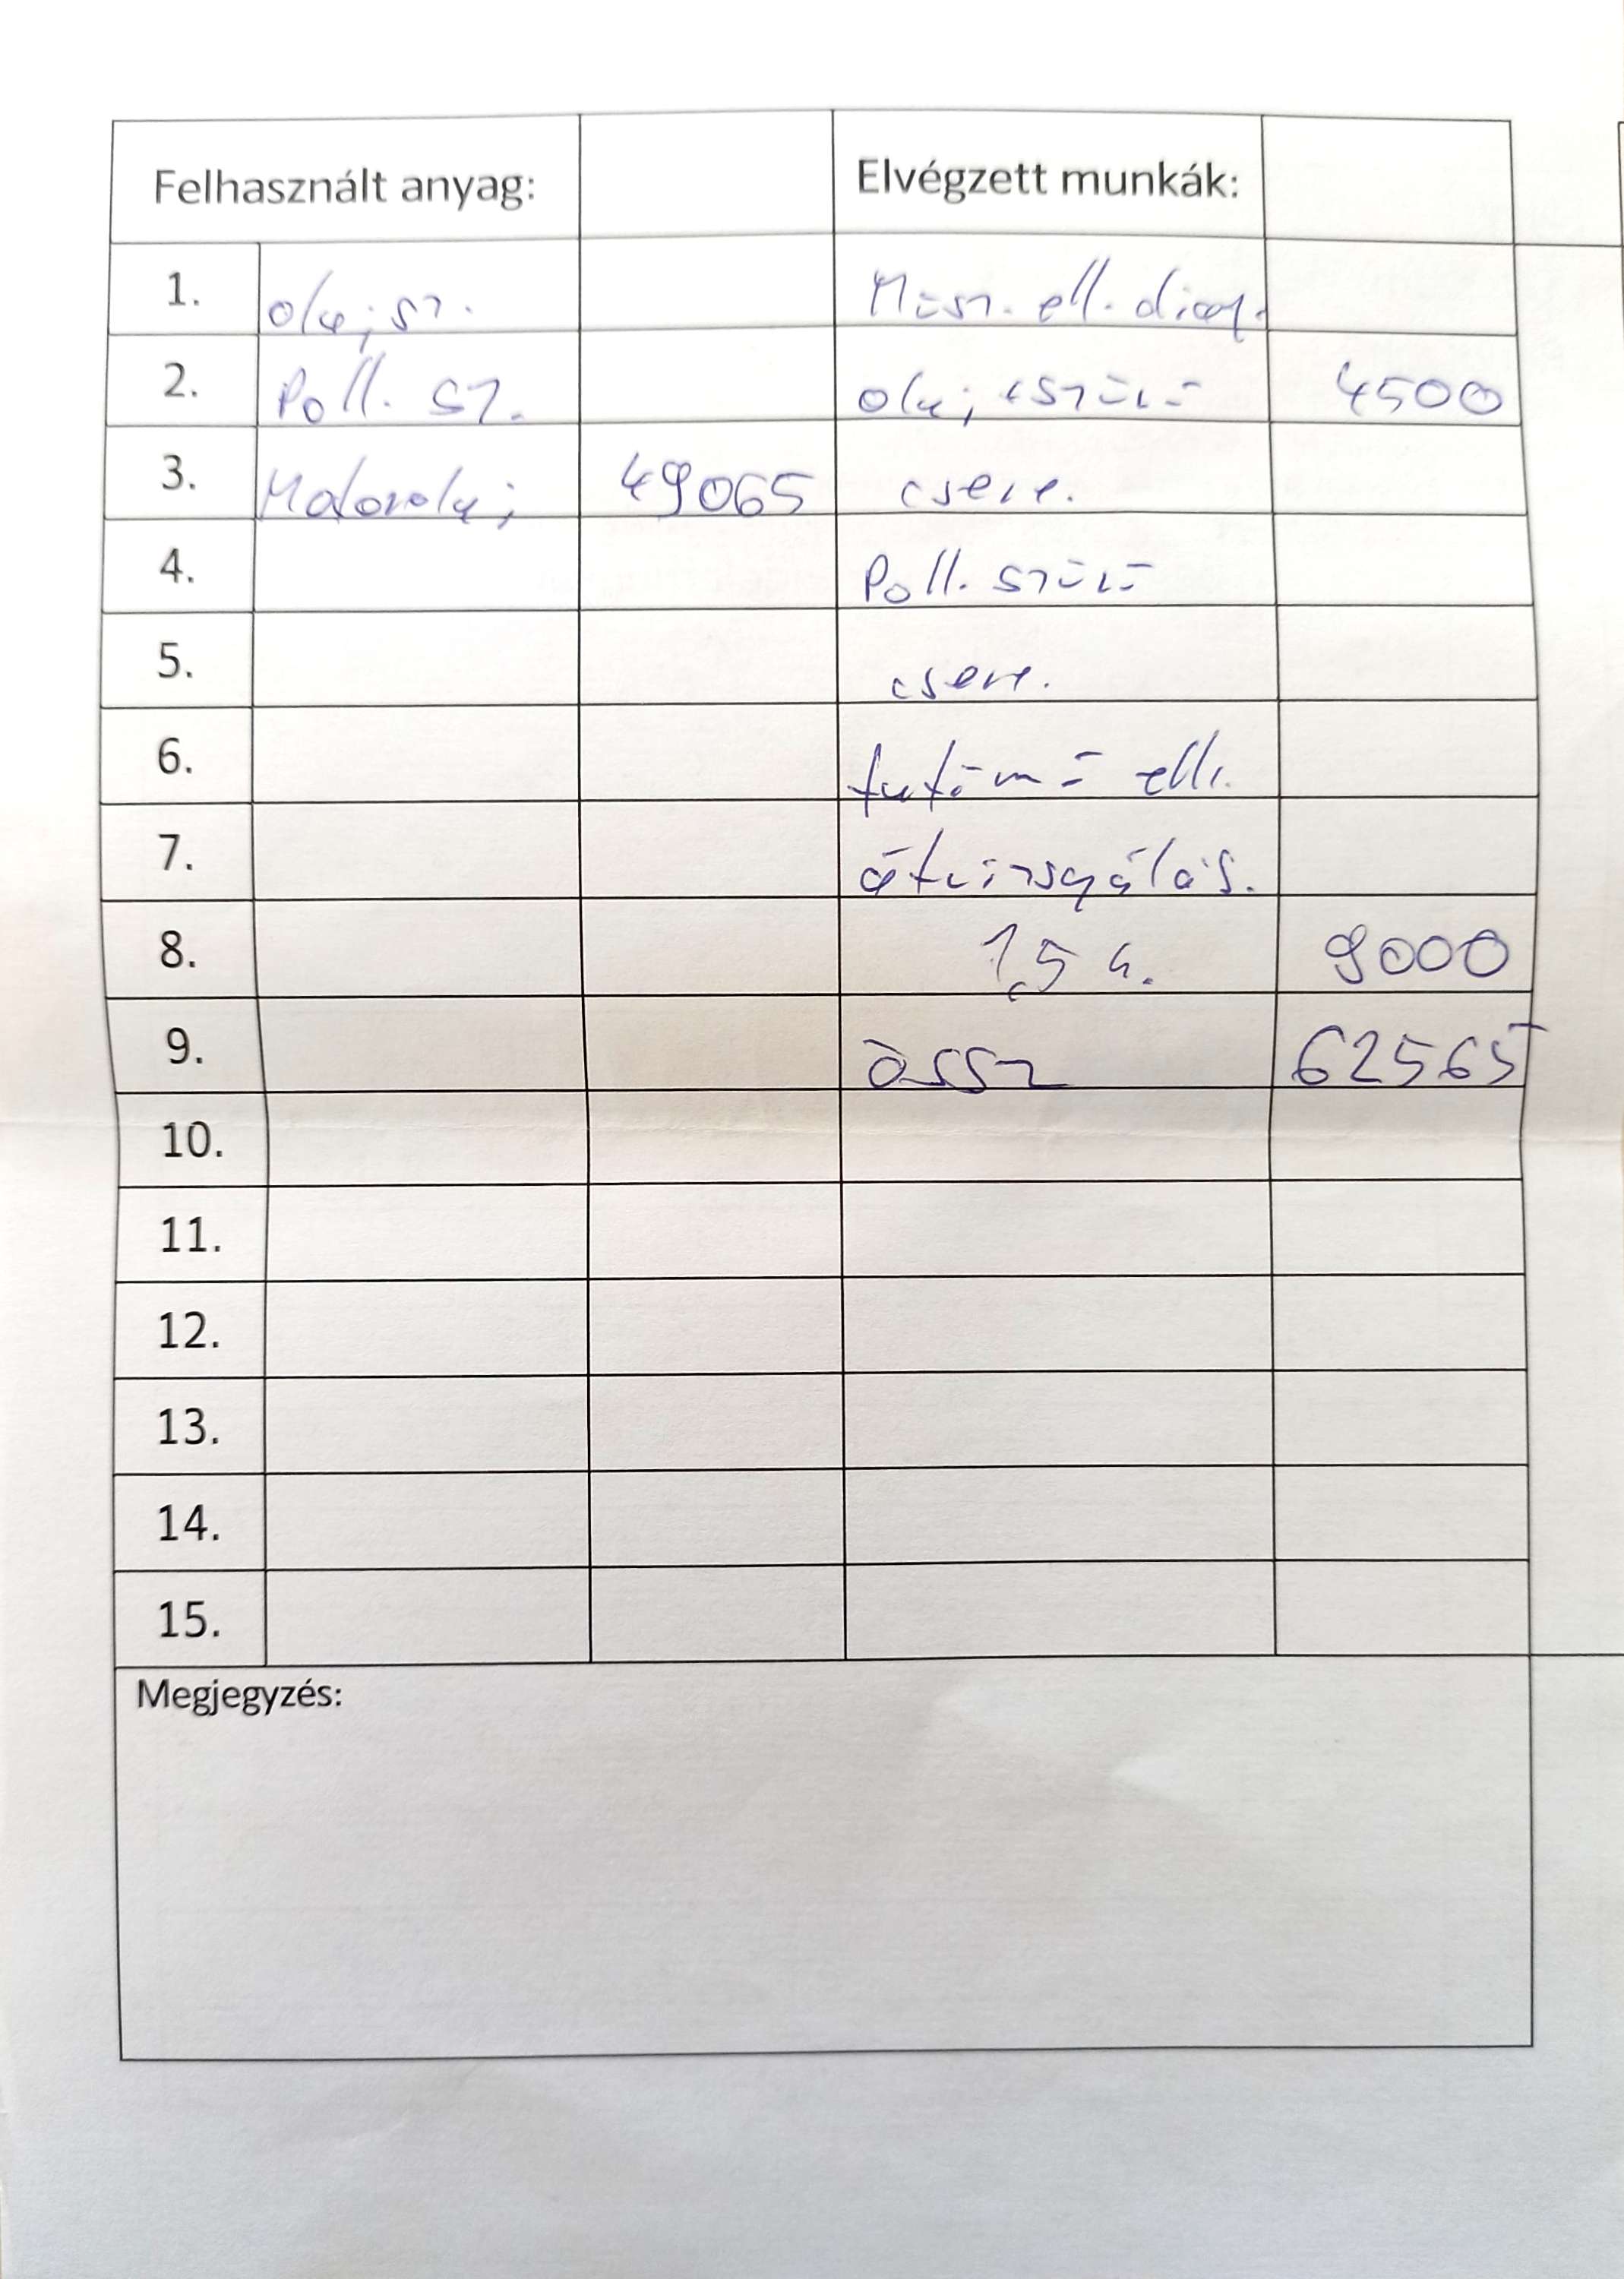 Felhasznált anyag: Elvégzett munkák:
1. olaj sz. Műsz. ell. diag.
2. Poll. sz. olaj + szűrő 4500
3. Motorolaj 49065 csere.
4. Poll. szűrő
5. csere.
6. futómű ell.
7. átvizsgálás.
8. 1,5 h. 9000
9. össz 62565
10.
11.
12.
13.
14.
15.
Megjegyzés: